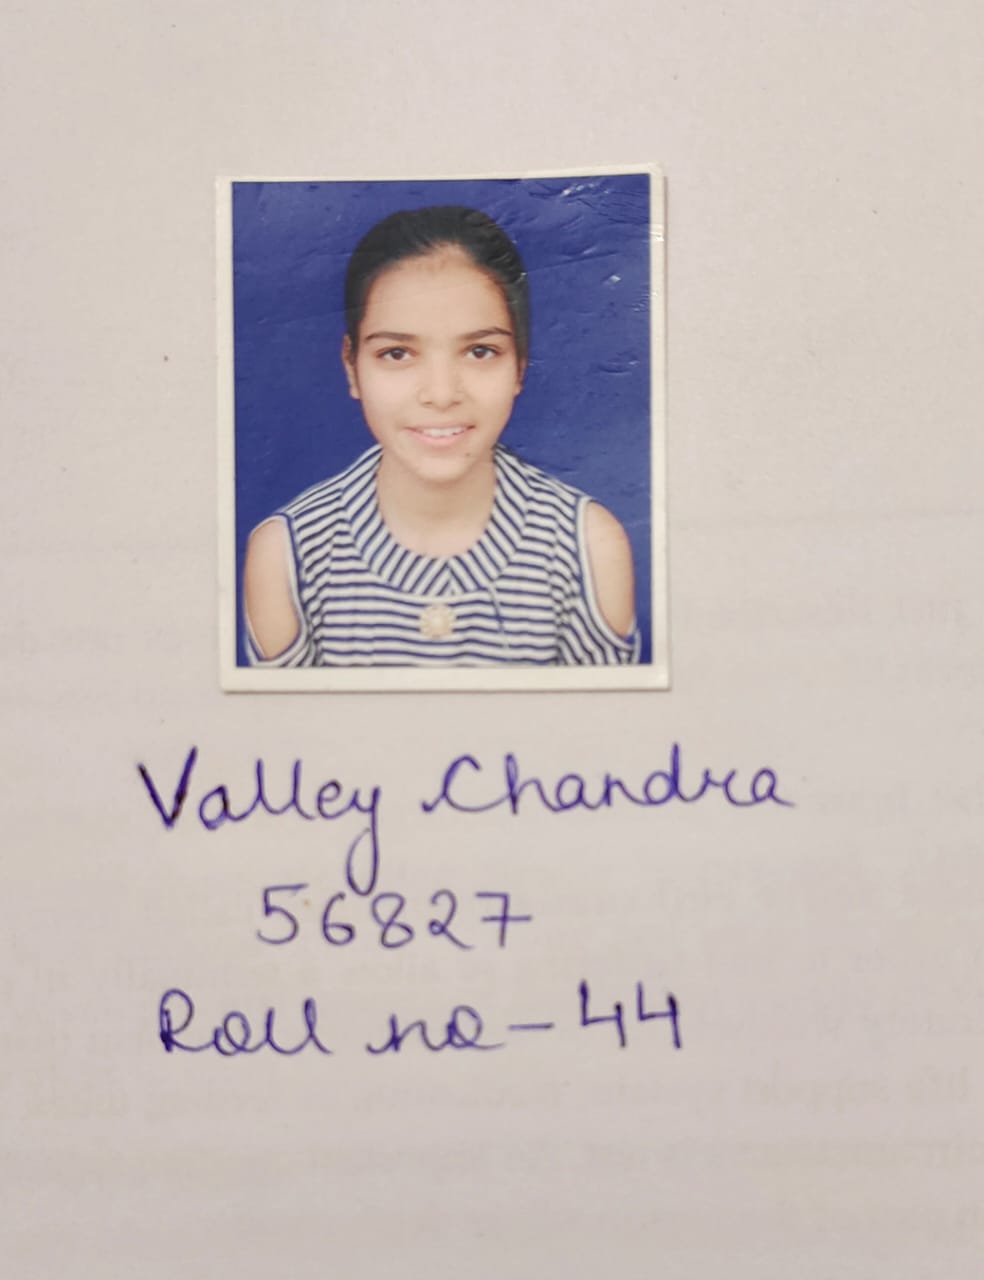 Valley Chandra
56827
Roll no - 44